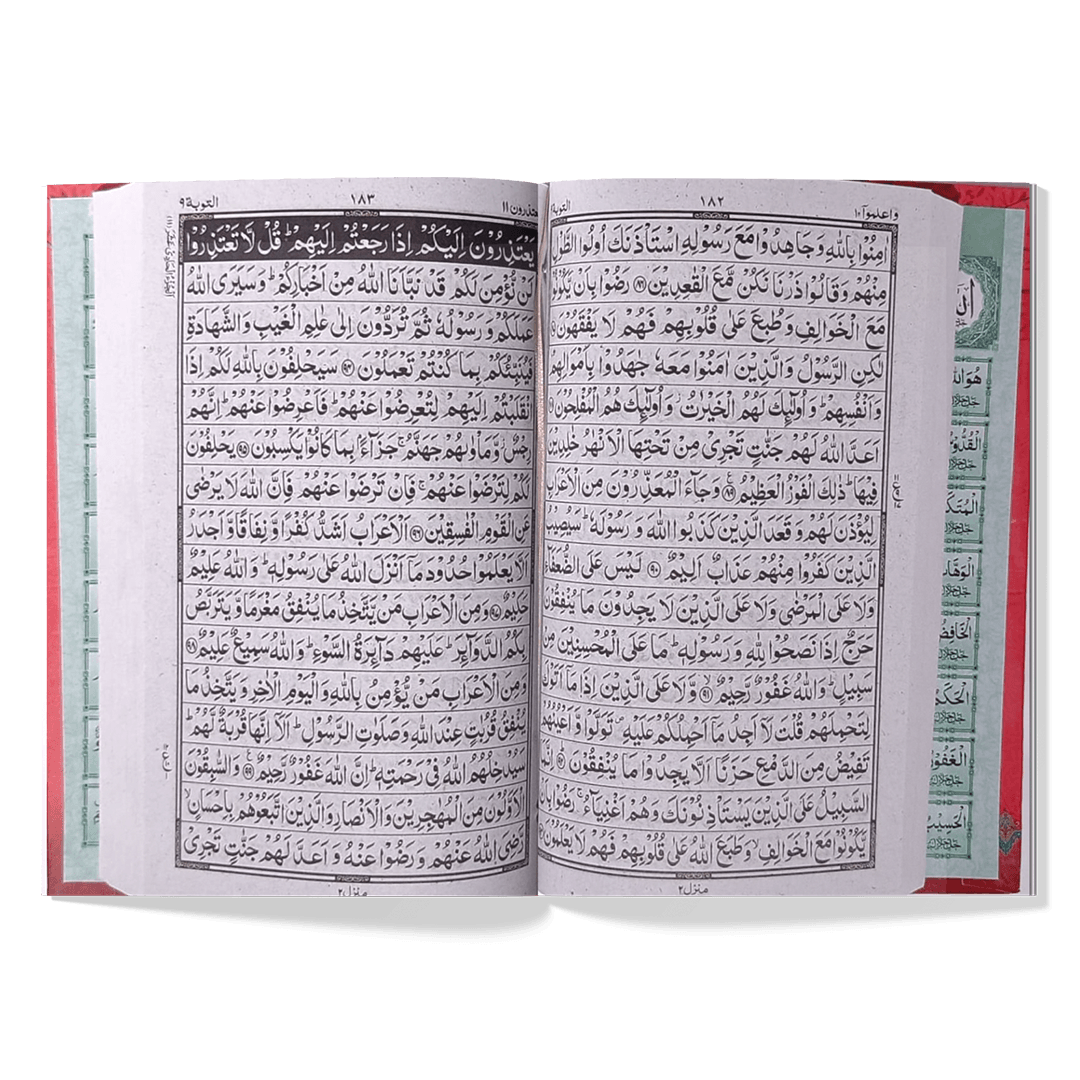 واعلموآ ١٠
١٨٢
التوبة
اٰمِنُوْا بِاللّٰهِ وَجَاهِدُوْا مَعَ رَسُوْلِهِ اسْتَاْذَنَكَ اُولُوا الطَّوْلِ
مِنْهُمْ وَقَالُوْا ذَرْنَا نَكُنْ مَّعَ الْقٰعِدِيْنَ ﴿٨٦﴾ رَضُوْا بِاَنْ يَّكُوْنُوْا
مَعَ الْخَوَالِفِ وَطُبِعَ عَلٰى قُلُوْبِهِمْ فَهُمْ لَا يَفْقَهُوْنَ
لٰكِنِ الرَّسُوْلُ وَالَّذِيْنَ اٰمَنُوْا مَعَهٗ جٰهَدُوْا بِاَمْوَالِهِمْ
وَاَنْفُسِهِمْ ؕ وَاُولٰٓئِكَ لَهُمُ الْخَيْرٰتُ ؗ وَاُولٰٓئِكَ هُمُ الْمُفْلِحُوْنَ
اَعَدَّ اللّٰهُ لَهُمْ جَنّٰتٍ تَجْرِيْ مِنْ تَحْتِهَا الْاَنْهٰرُ خٰلِدِيْنَ
فِيْهَا ؕ ذٰلِكَ الْفَوْزُ الْعَظِيْمُ ﴿٨٩﴾ وَجَآءَ الْمُعَذِّرُوْنَ مِنَ الْاَعْرَابِ
لِيُؤْذَنَ لَهُمْ وَقَعَدَ الَّذِيْنَ كَذَبُوا اللّٰهَ وَرَسُوْلَهٗ ؕ سَيُصِيْبُ
الَّذِيْنَ كَفَرُوْا مِنْهُمْ عَذَابٌ اَلِيْمٌ ﴿٩٠﴾ لَيْسَ عَلَى الضُّعَفَآءِ
وَلَا عَلَى الْمَرْضٰى وَلَا عَلَى الَّذِيْنَ لَا يَجِدُوْنَ مَا يُنْفِقُوْنَ
حَرَجٌ اِذَا نَصَحُوْا لِلّٰهِ وَرَسُوْلِهٖ ؕ مَا عَلَى الْمُحْسِنِيْنَ مِنْ
سَبِيْلٍ ؕ وَاللّٰهُ غَفُوْرٌ رَّحِيْمٌ ﴿٩١﴾ وَّلَا عَلَى الَّذِيْنَ اِذَا مَآ اَتَوْكَ
لِتَحْمِلَهُمْ قُلْتَ لَآ اَجِدُ مَآ اَحْمِلُكُمْ عَلَيْهِ ۪ تَوَلَّوْا وَّاَعْيُنُهُمْ
تَفِيْضُ مِنَ الدَّمْعِ حَزَنًا اَلَّا يَجِدُوْا مَا يُنْفِقُوْنَ ﴿٩٢﴾ اِنَّمَا
السَّبِيْلُ عَلَى الَّذِيْنَ يَسْتَاْذِنُوْنَكَ وَهُمْ اَغْنِيَآءُ ۚ رَضُوْا بِاَنْ
يَّكُوْنُوْا مَعَ الْخَوَالِفِ ۙ وَطَبَعَ اللّٰهُ عَلٰى قُلُوْبِهِمْ فَهُمْ لَا يَعْلَمُوْنَ
منزل ٢
يعتذرون ١١
١٨٣
التوبة ٩
يَعْتَذِرُوْنَ اِلَيْكُمْ اِذَا رَجَعْتُمْ اِلَيْهِمْ ؕ قُلْ لَّا تَعْتَذِرُوْا
لَنْ نُّؤْمِنَ لَكُمْ قَدْ نَبَّاَنَا اللّٰهُ مِنْ اَخْبَارِكُمْ ؕ وَسَيَرَى اللّٰهُ
عَمَلَكُمْ وَرَسُوْلُهٗ ثُمَّ تُرَدُّوْنَ اِلٰى عٰلِمِ الْغَيْبِ وَالشَّهَادَةِ
فَيُنَبِّئُكُمْ بِمَا كُنْتُمْ تَعْمَلُوْنَ ﴿٩٤﴾ سَيَحْلِفُوْنَ بِاللّٰهِ لَكُمْ اِذَا
انْقَلَبْتُمْ اِلَيْهِمْ لِتُعْرِضُوْا عَنْهُمْ ؕ فَاَعْرِضُوْا عَنْهُمْ ؕ اِنَّهُمْ
رِجْسٌ ؗ وَّمَاْوٰىهُمْ جَهَنَّمُ ۚ جَزَآءًۢ بِمَا كَانُوْا يَكْسِبُوْنَ ﴿٩٥﴾ يَحْلِفُوْنَ
لَكُمْ لِتَرْضَوْا عَنْهُمْ ۚ فَاِنْ تَرْضَوْا عَنْهُمْ فَاِنَّ اللّٰهَ لَا يَرْضٰى
عَنِ الْقَوْمِ الْفٰسِقِيْنَ ﴿٩٦﴾ اَلْاَعْرَابُ اَشَدُّ كُفْرًا وَّنِفَاقًا وَّاَجْدَرُ
اَلَّا يَعْلَمُوْا حُدُوْدَ مَآ اَنْزَلَ اللّٰهُ عَلٰى رَسُوْلِهٖ ؕ وَاللّٰهُ عَلِيْمٌ
حَكِيْمٌ ﴿٩٧﴾ وَمِنَ الْاَعْرَابِ مَنْ يَّتَّخِذُ مَا يُنْفِقُ مَغْرَمًا وَّيَتَرَبَّصُ
بِكُمُ الدَّوَآئِرَ ؕ عَلَيْهِمْ دَآئِرَةُ السَّوْءِ ؕ وَاللّٰهُ سَمِيْعٌ عَلِيْمٌ ﴿٩٨﴾
وَمِنَ الْاَعْرَابِ مَنْ يُّؤْمِنُ بِاللّٰهِ وَالْيَوْمِ الْاٰخِرِ وَيَتَّخِذُ مَا
يُنْفِقُ قُرُبٰتٍ عِنْدَ اللّٰهِ وَصَلَوٰتِ الرَّسُوْلِ ؕ اَلَآ اِنَّهَا قُرْبَةٌ لَّهُمْ ؕ
سَيُدْخِلُهُمُ اللّٰهُ فِيْ رَحْمَتِهٖ ؕ اِنَّ اللّٰهَ غَفُوْرٌ رَّحِيْمٌ ﴿٩٩﴾ وَالسّٰبِقُوْنَ
الْاَوَّلُوْنَ مِنَ الْمُهٰجِرِيْنَ وَالْاَنْصَارِ وَالَّذِيْنَ اتَّبَعُوْهُمْ بِاِحْسَانٍ ۙ
رَّضِيَ اللّٰهُ عَنْهُمْ وَرَضُوْا عَنْهُ وَاَعَدَّ لَهُمْ جَنّٰتٍ تَجْرِيْ
منزل ٢
هُوَاللّٰهُ
الْقُدُّوْسُ
الْوَهَّابُ
الْخَافِضُ
الْحَكَمُ
الْغَفُوْرُ
الْحَسِيْبُ